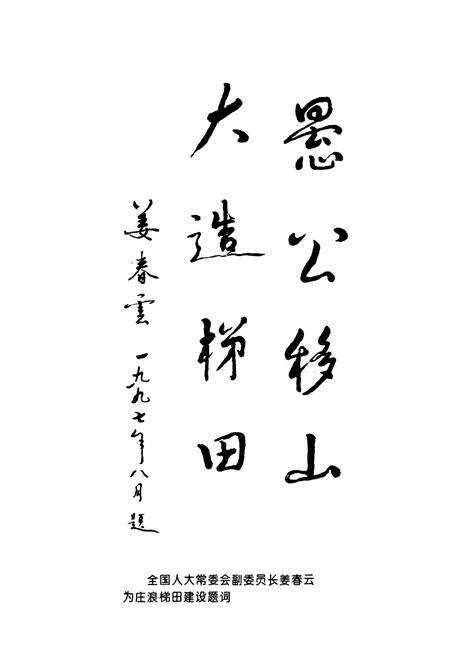 愚公移山
大造梯田
姜春雲 一九九七年八月題
全国人大常委会副委员长姜春云
为庄浪梯田建设题词